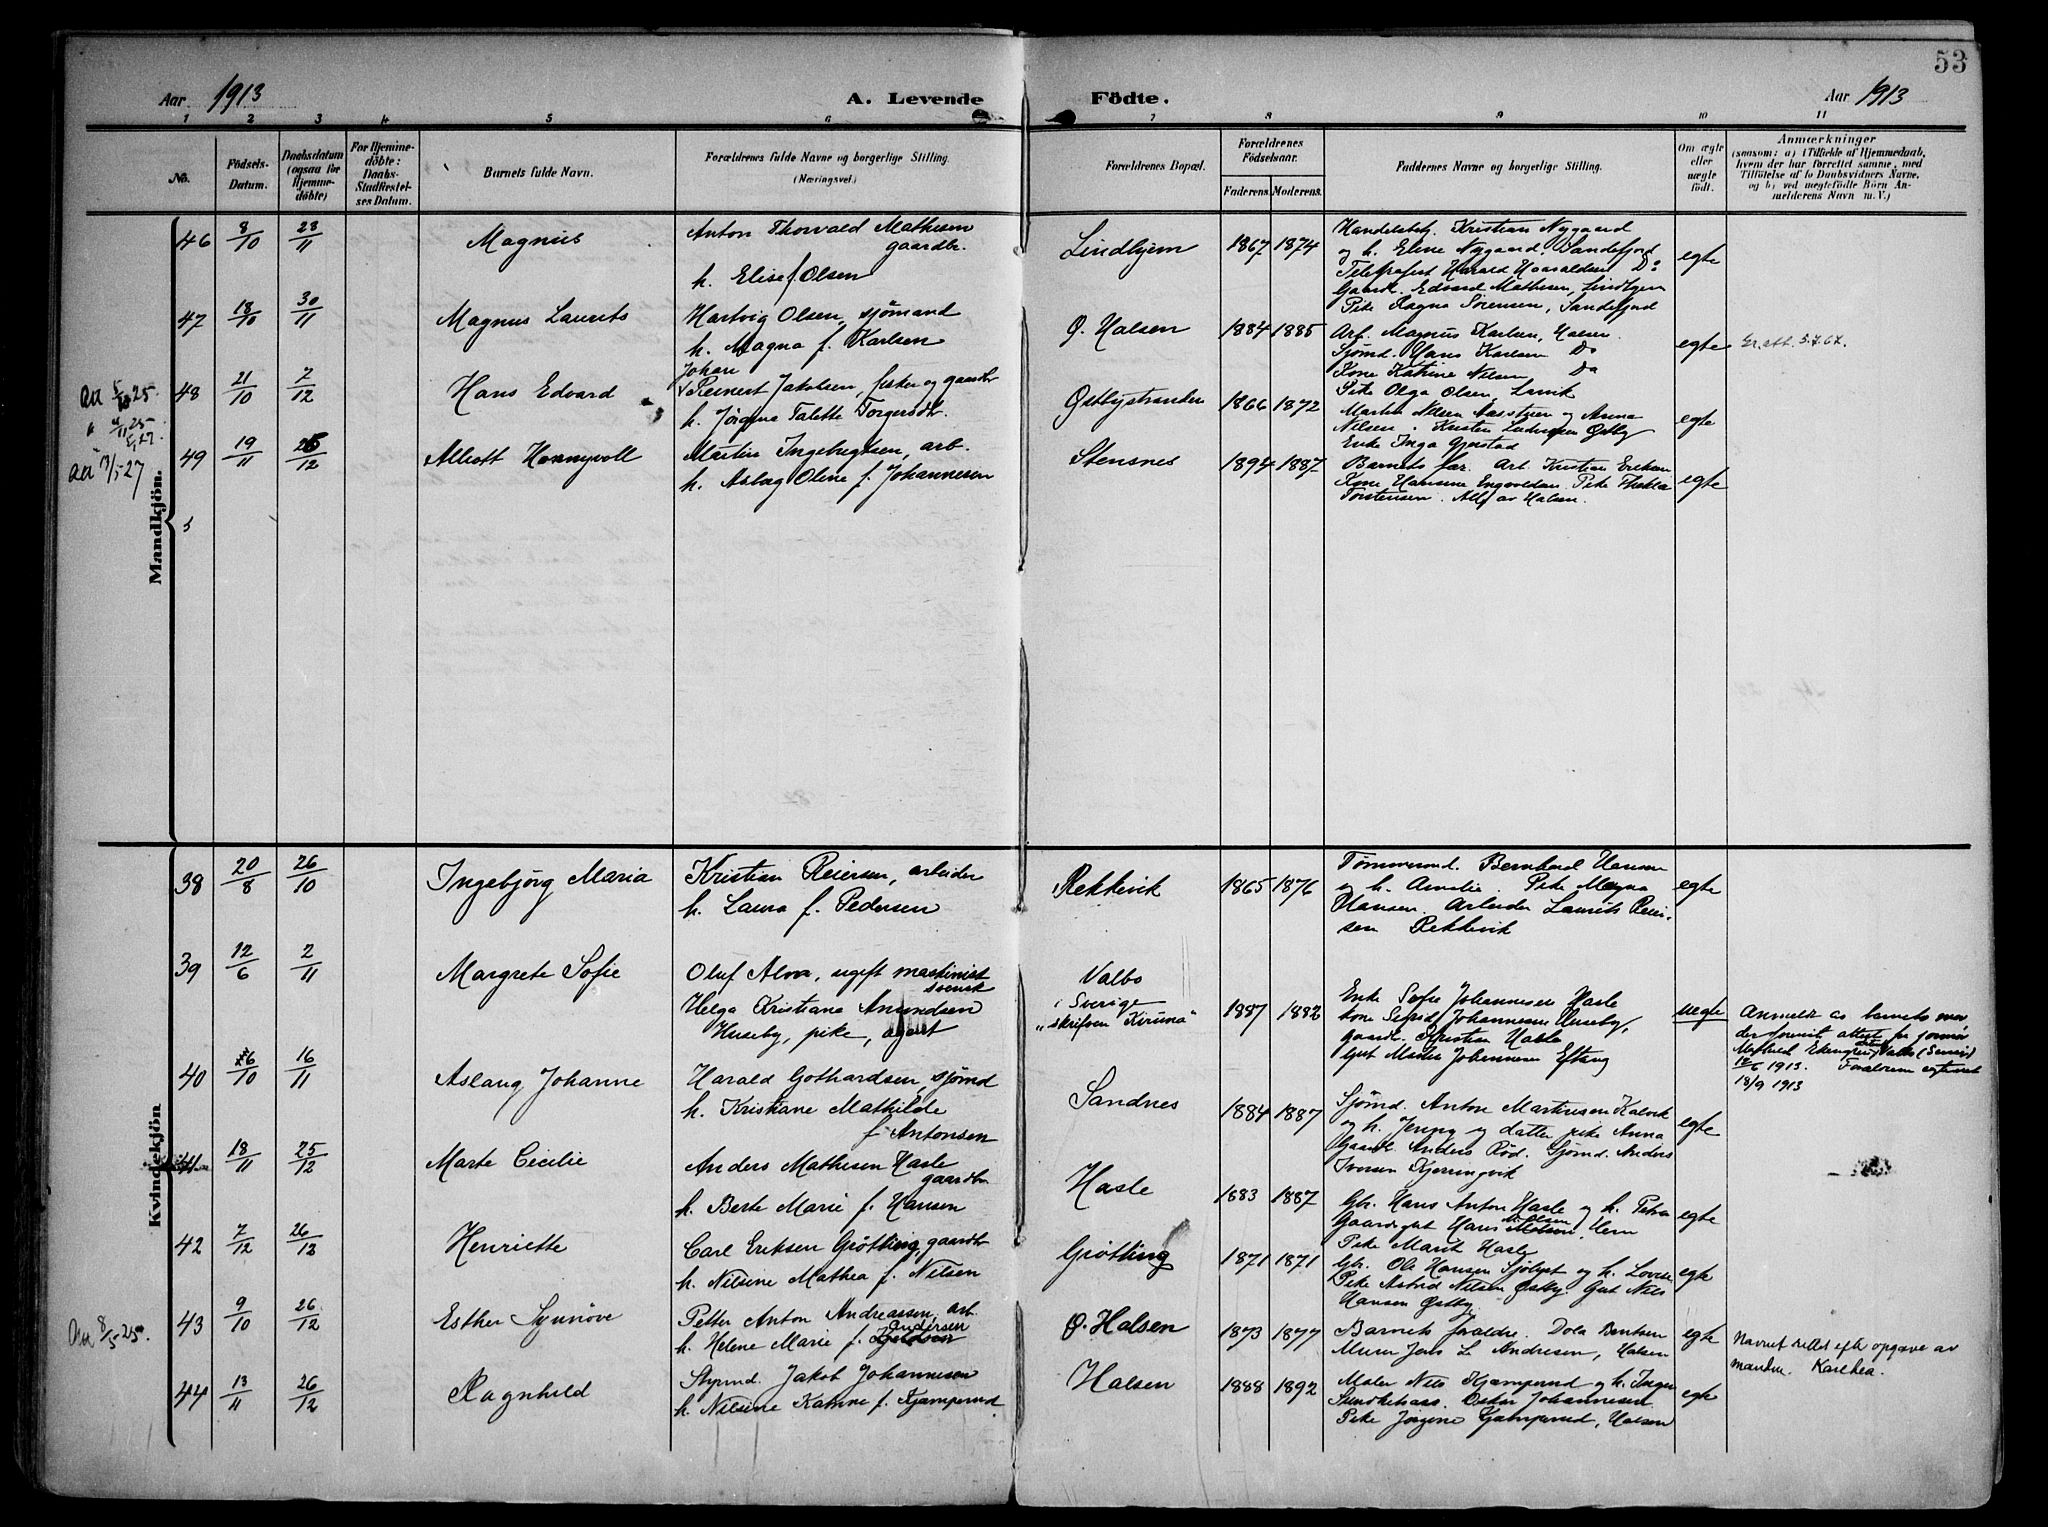 53
Aar 1913
A. Levende
Födte.
Aar 1913
1 2 3 4 5 6 7 8 9 10 11
No.
Födsels-
Datum.
Daabsdatum
(ogsaa for
Hjemme-
döbte)
For Hjemme-
döbte:
Daabs-
Stadfæstel-
ses Datum.
Barnets fulde Navn.
Forældrenes fulde Navne og borgerlige Stilling.
(Næringsvei.)
Forældrenes Bopæl.
Forældrenes
Födselsaar.
Faderens. Moderens.
Faddernes Navne og borgerlige Stilling.
Om ægte
eller
uægte
födt.
Anmærkninger
(saasom: a) i Tilfælde af Hjemmedaab,
hvem der har forrettet samme, med
Tilföielse af to Daabsvidners Navne,
og b) ved uægtefödte Börn An-
melderens Navn m. V.)
Mandkjön.
46 8/10 23/11 Magnus
Anton Thorvald Mathisen
gaardbr.
h. Elise f. Olsen
Lindhjem 1867 1874
Handelsbetj. Kristian Nygaard
og h. Elene Nygaard, Sandefjord
Telegrafist Harald Do
Gaardbr. Edvard Mathisen, Lindhjem
Pike Ragna Sørensen, Sandefjord
egte
47 18/10 30/11 Magnus Laurits
Hartvig Olsen, sjømand
h. Magna f. Karlsen
Ø. Halsen 1884 1885
Arb. Magnus Karlsen, Halsen
Sjømd. Hans Karlsen Do
Kone Katrine Nilsen Do
Pike Olga Olsen, Larvik
egte
48 21/10 7/12 Hans Edvard
Johan
Reinert Jakobsen, fisker og gaardbr
h. Jørgine Talette Torgersdtr.
Østbystranden 1866 1872
Martin Nilsen og Anna
Nilsen. Kristen Ludvigsen Østby
Enke Inga Gjerstad
egte
Att 5/10 25
Att 13/5 27
49 19/11 26/12 Alliott Honnyvoll
Martin Ingebregtsen, arb.
h. Aslaug Oline f. Johannesen
Stensnes 1894 1887
Barnets far. Arb. Kristian Eriksen
Kone Hansine Engvoldsen. Pike Thekla
Torstensen. Alle av Halsen.
egte
Kvindekjön
38 20/8 26/10 Ingebjörg Maria
Kristian Reiersen, arbeider
h. Laura f. Pedersen
Rekkevik 1865 1876
Tømmermd. Bernhard Hansen
og h. Amalie. Pike Magna
Hansen. Arbeider Laurits Reier-
sen Rekkevik
egte
39 12/6 2/11 Margrete Sofie
Oluf Alva, ugift maskinist
svensk
Helga Kristiane Amundsen
Huseby, pike, ugift
Valbo
i Sverige
"skrifven Kiruna"
1887 1882
Enke Sofie Johannesen Hasle
kone Sigrid Johannesen Huseby,
gaardbr. Kristian Hasle
Gut Martin Johannesen Eftang
uegte
Anmeldt av barnets mo-
der forevist attest fra jormor
Mathild Ekengren, Valbo (Sverige)
12/6 1913. Forældrene egteviet
18/9 1913
40 26/10 16/11 Aslaug Johanne
Harald Gothardsen, sjømd
h. Kristiane Mathilde
f Antonsen
Sandnes 1884 1887
Sjømd. Anton Martinsen Kalvik
og h. Jenny og datter pike Anna
Gaardbr. Anders Rød. Sjømd. Anders
Iversen Kjerringvik
egte
41 18/11 25/12 Marte Cecilie
Anders Mathisen Hasle
gaardbr
h. Berte Marie f. Hansen
Hasle 1883 1887
Gbr. Hans Anton Hasle og h. Petra
Gaardsgut Hans Hem
Pike Marit Hasle
egte
42 7/12 26/12 Henriette
Carl Eriksen Grøtting, gaardbr
h. Nilsine Mathea f. Nilsen
Grøtting 1871 1871
Gbr. Ole Hansen Sjølyst og h. Lovise
Pike Astrid Nilsen Østby. Gut Nils
Hansen Østby
egte
Att 8/5 25.
43 9/10 26/12 Esther Synnöve
Petter Anton Andreassen arb.
Andersen
h. Helene Marie f.
Ø. Halsen 1873 1877
Barnets foreldre. Dola Bentsen
Murer Jens L. Andresen, Halsen
egte
Navnet rettet eft. opgave av
manden. Karlhea.
44 13/11 26/12 Ragnhild
Styrmd. Jakob Johannesen
h. Nilsine Katrine f. Kjæmperud
Halsen 1888 1892
Maler Nils Kjæmperud og h. Inga
Oskar Johannesen
Pike Jørgine Kjæmperud, Halsen
egte